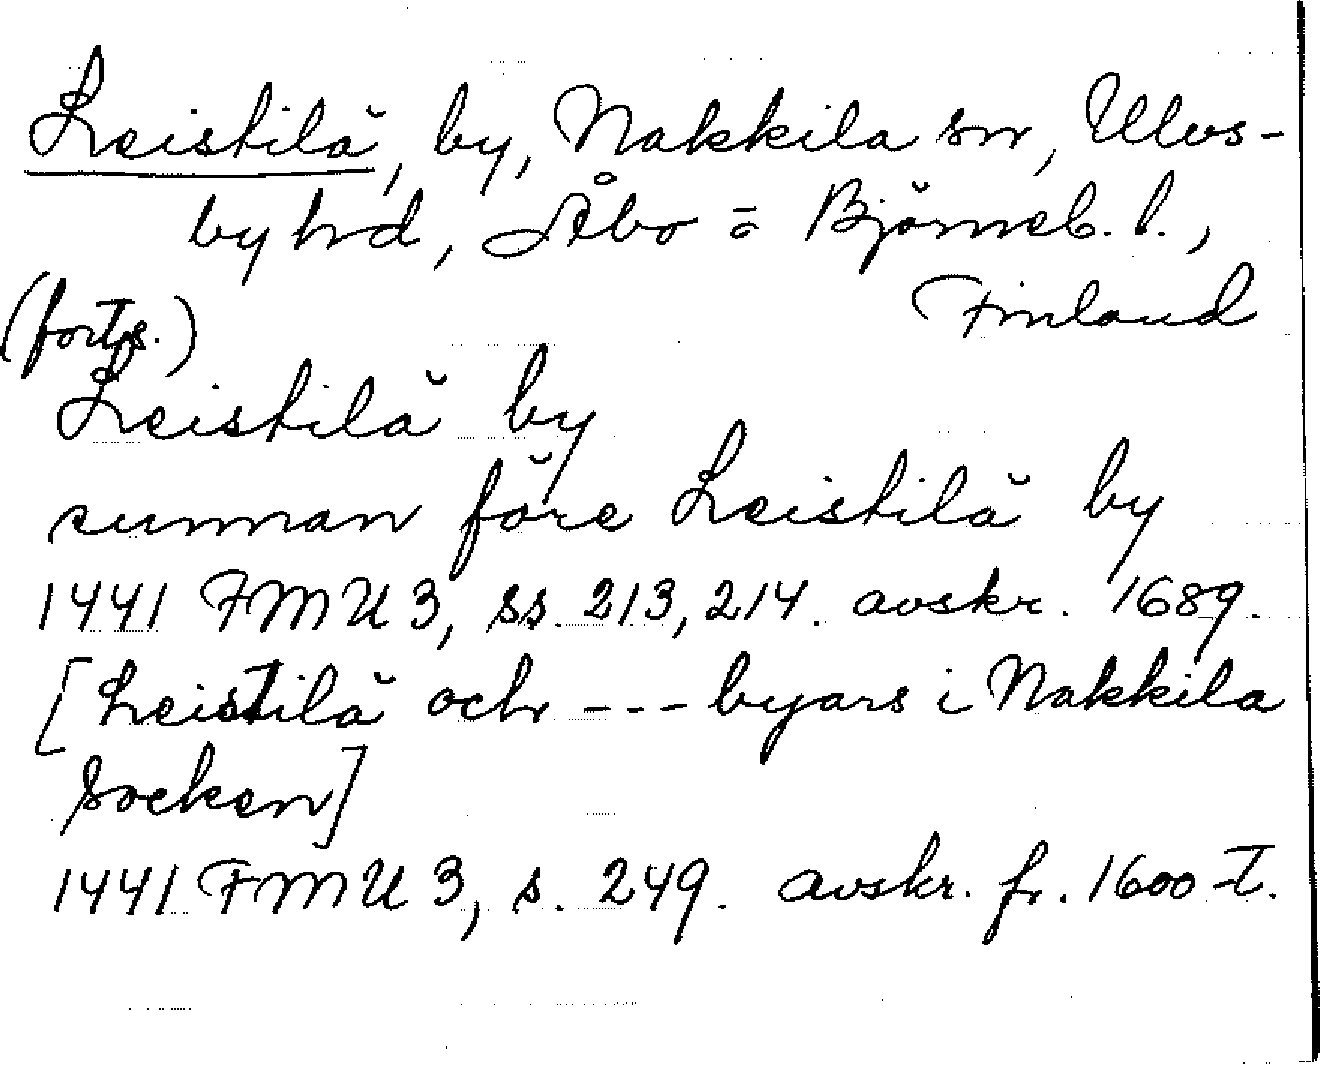 Leistilä, by, Nakkila sn, Ulvs-
by hrd, Åbo o Björneb. l.,
Finland
(forts.)
Leistilä by
sunnan före Leistilä by
1441 FMU 3, ss. 213, 214. avskr. 1689.
[Leistilä och --- byars i Nakkila
Socken]
1441 FMU 3, s. 249. avskr. fr. 1600-t.